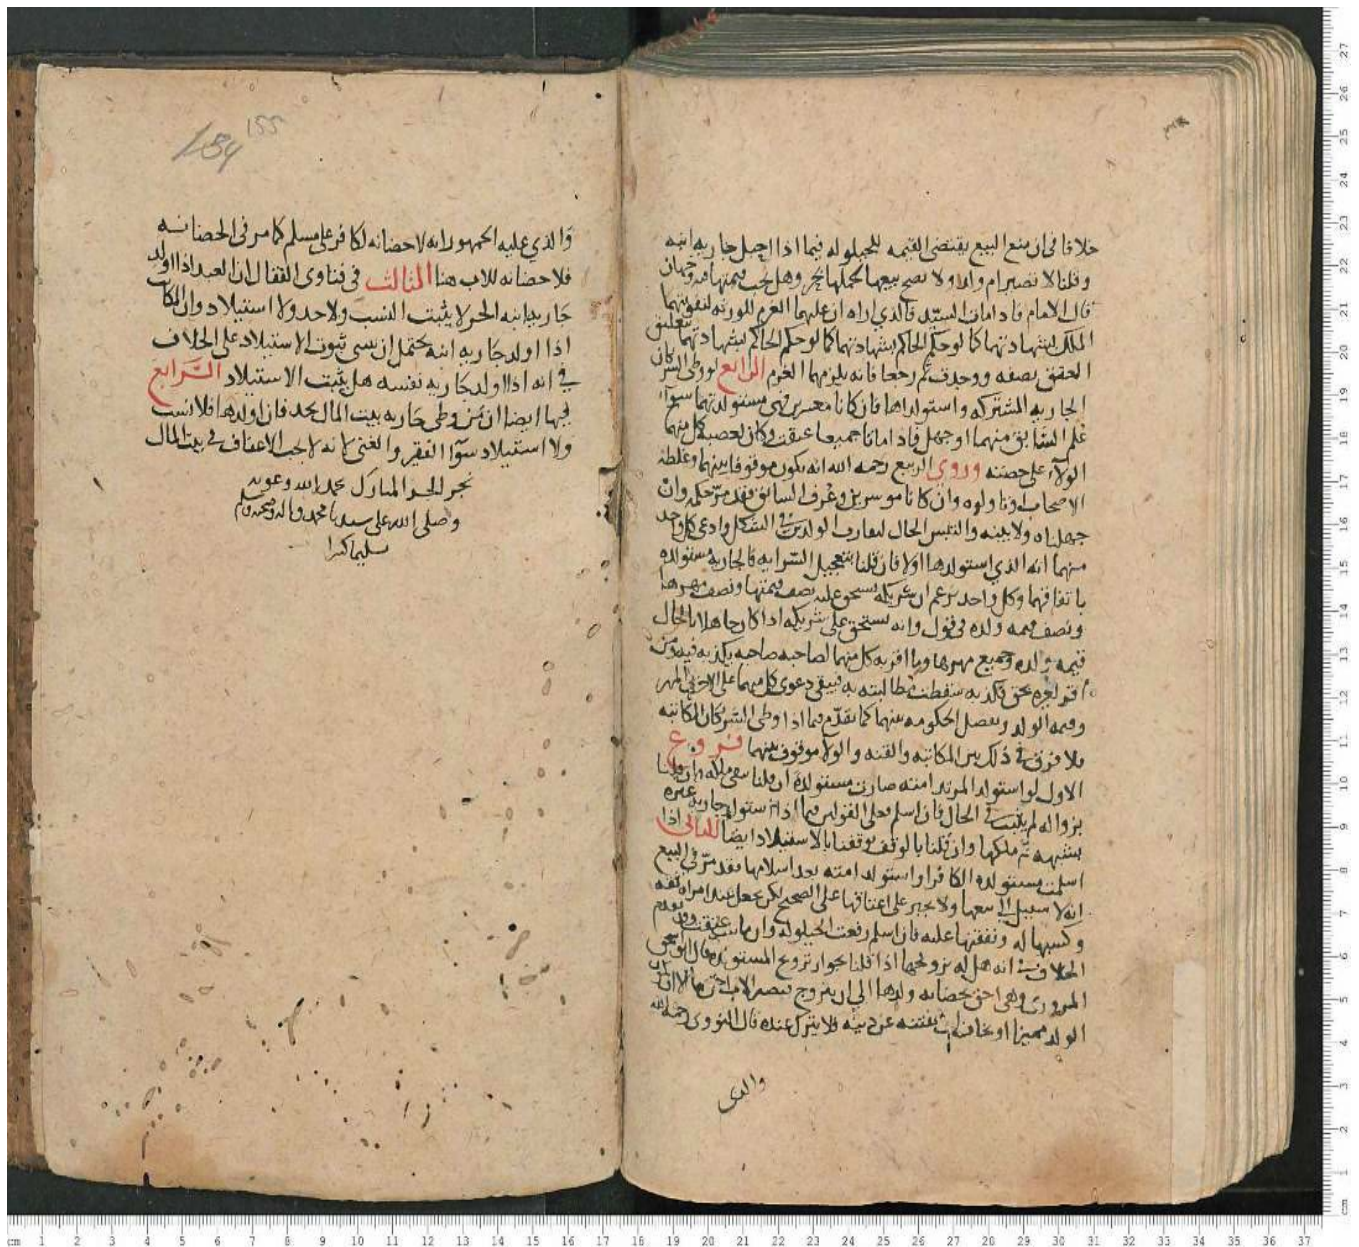 خلافا في ان منع البيع يقتضى القيمه للحيلوله فيما اذا احبل جاريه ابنه
وقلنا لا تصير ام ولد ولا يصح بيعها لحملها بحر وهل يجب قيمتها فيه وجهان
قال الامام فاذا مات السيد فالذي اراه ان عليهما الغرم للورثه لتفويتهما
الملك بشهادتهما كما لو حكم الحاكم بشهادتهما بتعليق
العتق بصفه ووجدت ثم رجعا فانه يلزمهما الغرم الرابع لو وطى الشريكان
الجاريه المشتركه واستولداها فان كانا معسرين فهى مستولدتهما سوآء
علم السابق منهما او جهل فاذا ماتا جميعا عتقت وكان لعصبه كل منهما
الولآء على حصته وروى الربيع رحمه الله انه يكون موقوفا بينهما وغلطه
الاصحاب او تاولوه وان كانا موسرين وعرف السابق فقد مر حكمه وان
جهلناه ولا بينه والتبس الحال لتقارب الولدين في الشكل وادعى كل واحد
منهما انه الذي استولدها اولا فان قلنا بتعجيل السرايه فالجاريه مستولده
باتفاقهما وكل واحد يزعم ان شريكه يستحق عليه نصف قيمتها ونصف مهرها
ونصف قيمه ولده في قول وانه يستحق على شريكه اذا كان جاهلا بالحال
قيمه ولده وجميع مهرها وما اقر به كل منهما لصاحبه صاحبه يكذبه فيه ومن
اقر لغيره بحق فكذبه سقطت مطالبته به فيبقى دعوى كل منهما على الاخر في المهر
وقيمه الولد وتفصل الحكومه بينهما كما تقدم فيما اذا وطى الشريكان المكاتبه
فلا فرق في ذلك بين المكاتبه والقنه والولا موقوف بينهما فروع
الاول لو استولد المرتد امته صارت مستولدة ان قلنا ببقى ملكه وان قلنا
بزواله لم يثبت في الحال فان اسلم فعلى القولين فيما اذا استولد جاريه غيره
بشبهه ثم ملكها وان قلنا بالوقف توقفنا بالاستيلاد ايضا الثانى اذا
اسلمت مستولده الكافر او استولد امته بعد اسلامها فقد مر في البيع
انه لا سبيل الى بيعها ولا يجبر على اعتاقها على الصحيح لكن تجعل عند امراه ثقه
وكسبها له ونفقتها عليه فان اسلم رفعت الحيلوله وان مات عتقت وتقدم
الخلاف في انه هل له تزويجها اذا قلنا بجواز تزويج المستولده قال ابو اسحق
المروزى وهى احق بحضانه ولدها الى ان يتزوج فيصير الاب احق به الا ان
الولد مميزا او يخاف ان يفتنه عن دينه فلا يترك عنده قال النووى رحمه الله
والذى
154 155
والذي عليه الجمهور انه لا حضانه لكافر على مسلم كما مر في الحضانه
فلا حضانه للاب هنا الثالث في فتاوى القفال ان العبد اذا اولد
جاريه ابنه الحر لا يثبت النسب ولا حد ولا استيلاد وان المكاتب
اذا اولد جاريه ابنه يحتمل ان يبنى ثبوت الاستيلاد على الخلاف
في انه اذا اولد جاريه نفسه هل يثبت الاستيلاد الرابع
فيها ايضا ان من وطى جاريه بيت المال يحد فان اولدها فلا نسب
ولا استيلاد سوآ الفقير والغنى لانه لا يجب الاعفاف في بيت المال
نجز الجزء المبارك بحمد الله وعونه
وصلى الله على سيدنا محمد واله وصحبه وسلم
تسليما كثيرا